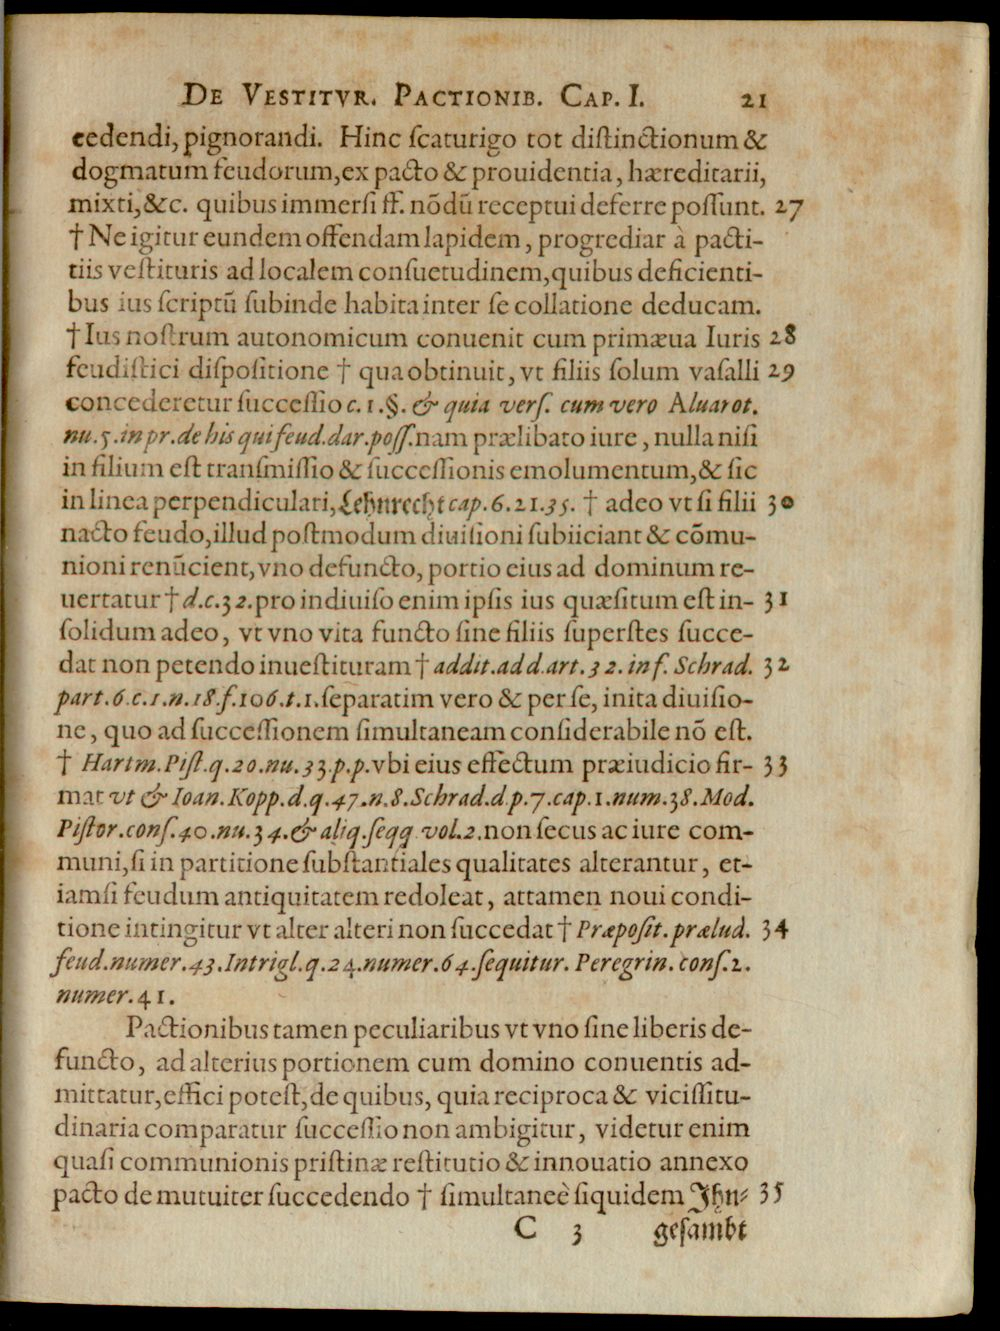 De Vestitvr. Pactionib. Cap. I. 21
cedendi, pignorandi. Hinc ſcaturigo tot diſtinctionum &
dogmatum feudorum, ex pacto & prouidentia, hæreditarii,
mixti, &c. quibus immerſi ff. nõdũ receptui deferre poſſunt. 27
† Ne igitur eundem offendam lapidem, progrediar à pacti-
tiis veſtituris ad localem conſuetudinem, quibus deficienti-
bus ius ſcriptũ ſubinde habita inter ſe collatione deducam.
† Ius noſtrum autonomicum conuenit cum primæua Iuris 28
feudiſtici diſpoſitione † qua obtinuit, vt filiis ſolum vaſalli 29
concederetur ſucceſſio c. 1. §. & quia verſ. cum vero Aluarot.
nu. 5. in pr. de his qui feud. dar. poſſ. nam prælibato iure, nulla niſi
in filium eſt tranſmiſſio & ſucceſſionis emolumentum, & ſic
in linea perpendiculari, Lehnrecht cap. 6. 21. 35. † adeo vt ſi filii 30
nacto feudo, illud poſtmodum diuiſioni ſubiiciant & cõmu-
nioni renũcient, vno defuncto, portio eius ad dominum re-
uertatur † d. c. 32. pro indiuiſo enim ipſis ius quæſitum eſt in- 31
ſolidum adeo, vt vno vita functo ſine filiis ſuperſtes ſucce-
dat non petendo inueſtituram † addit. ad d. art. 32. inf. Schrad. 32
part. 6. c. 1. n. 18. f. 106. t. 1. ſeparatim vero & per ſe, inita diuiſio-
ne, quo ad ſucceſſionem ſimultaneam conſiderabile nõ eſt.
† Hartm. Piſt. q. 20. nu. 33. p. p. vbi eius effectum præiudicio fir- 33
mat vt & Ioan. Kopp. d. q. 47. n. 8. Schrad. d. p. 7. cap. 1. num. 38. Mod.
Piſtor. conſ. 40. nu. 34. & aliq. ſeqq. vol. 2. non ſecus ac iure com-
muni, ſi in partitione ſubſtantiales qualitates alterantur, et-
iamſi feudum antiquitatem redoleat, attamen noui condi-
tione intingitur vt alter alteri non ſuccedat † Præpoſit. prælud. 34
feud. numer. 43. Intrigl. q. 24. numer. 64. ſequitur. Peregrin. conſ. 2.
numer. 41.
Pactionibus tamen peculiaribus vt vno ſine liberis de-
functo, ad alterius portionem cum domino conuentis ad-
mittatur, effici poteſt, de quibus, quia reciproca & viciſſitu-
dinaria comparatur ſucceſſio non ambigitur, videtur enim
quaſi communionis priſtinæ reſtitutio & innouatio annexo
pacto de mutuiter ſuccedendo † ſimultaneè ſiquidem Jhn⸗ 35
C 3 geſambt